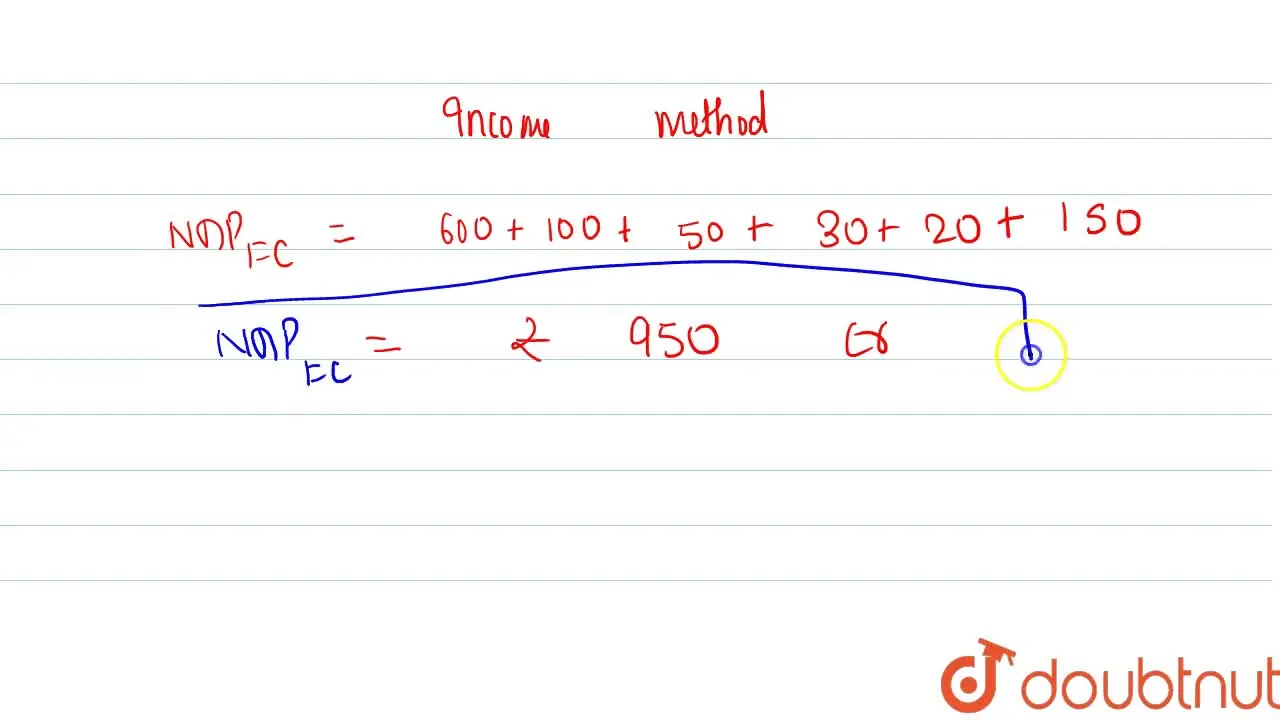 Income method
NDP FC = 600 + 100 + 50 + 30 + 20 + 150
NDP FC = ₹ 950 Cr
doubtnut